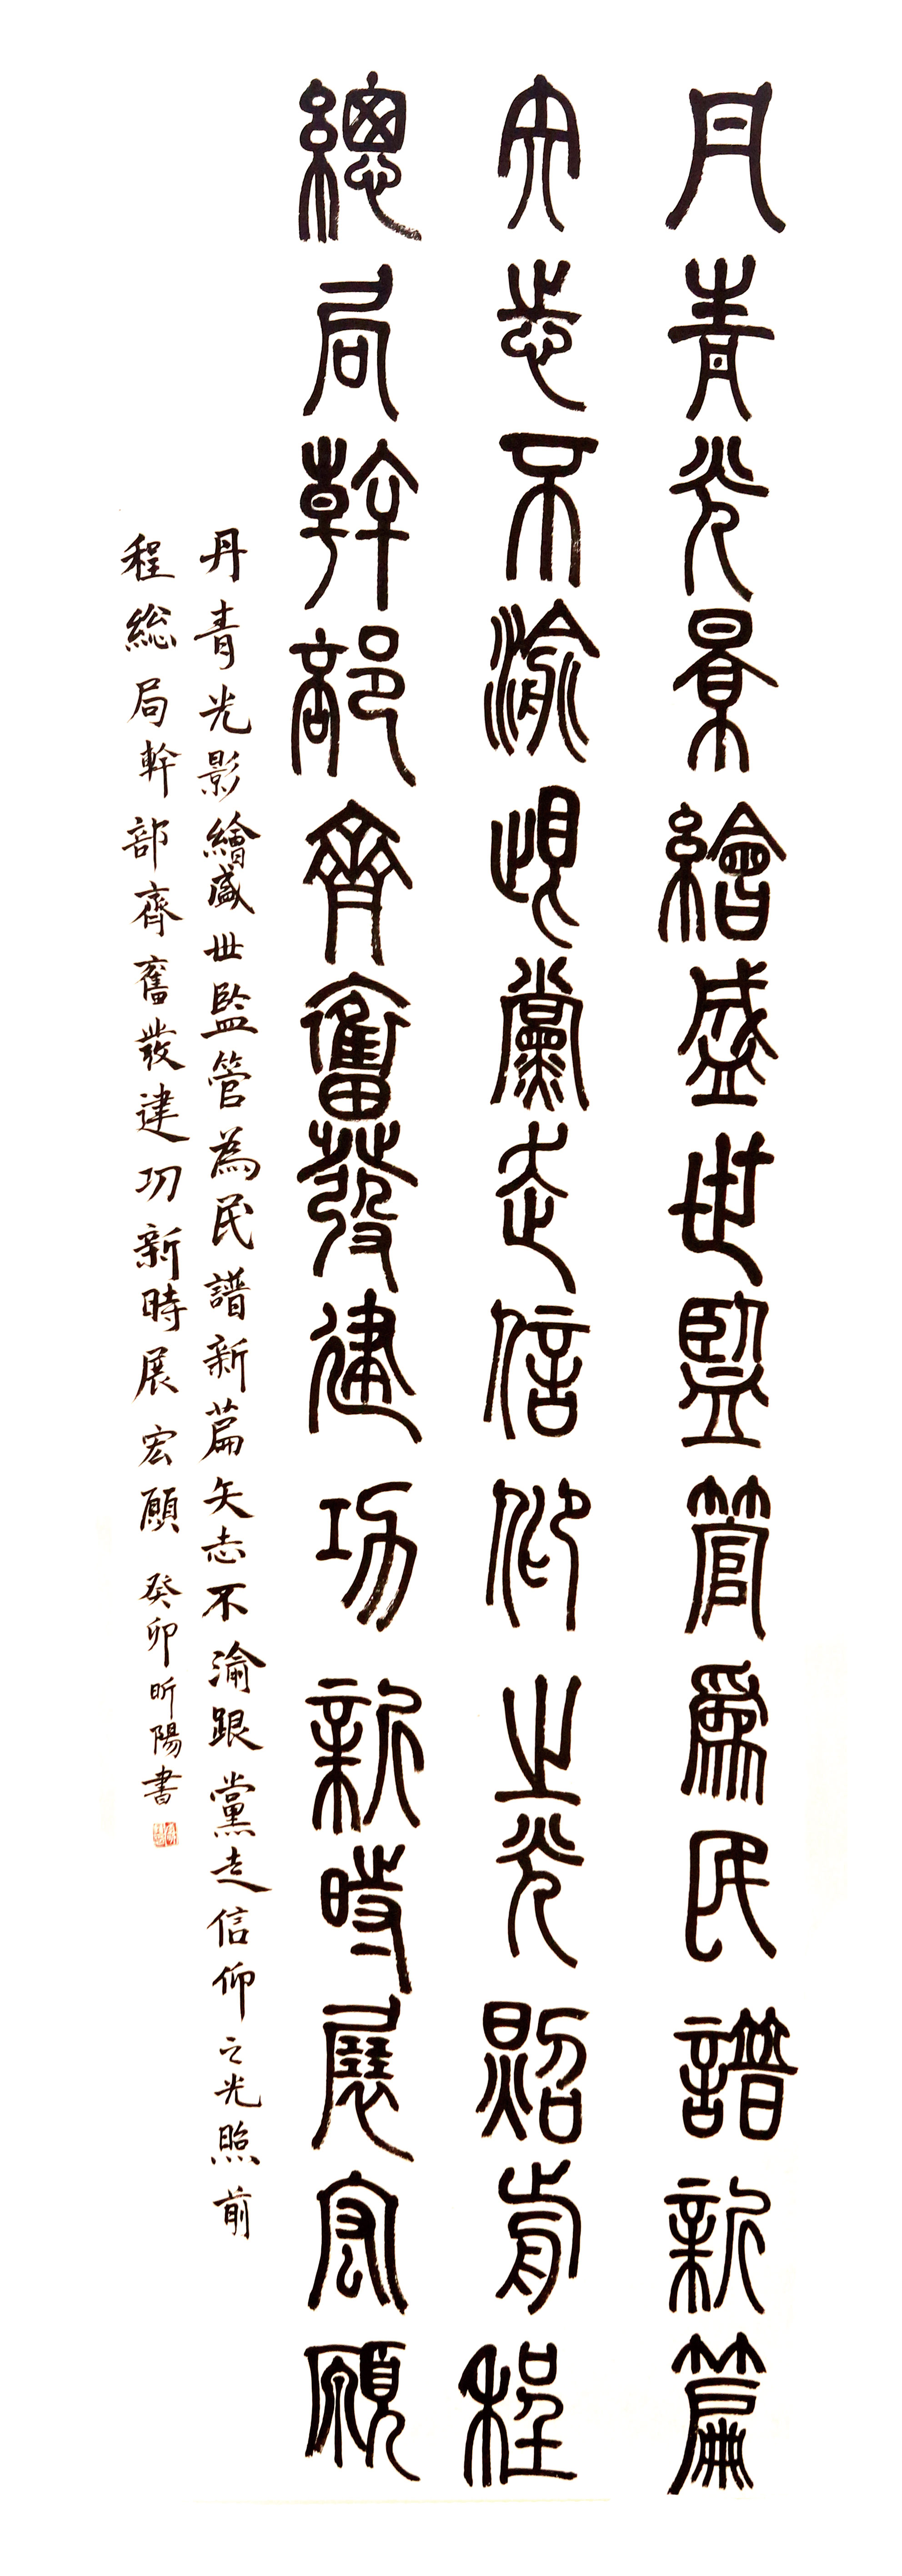 丹青光景繪盛世監管爲民譜新篇
矢志不渝跟黨走信仰之光照前程
總局幹部齊奮發建功新時展宏願
丹青光影繪盛世監管為民譜新篇矢志不渝跟黨走信仰之光照前
程総局幹部齊奮發建功新時展宏願 癸卯昕陽書